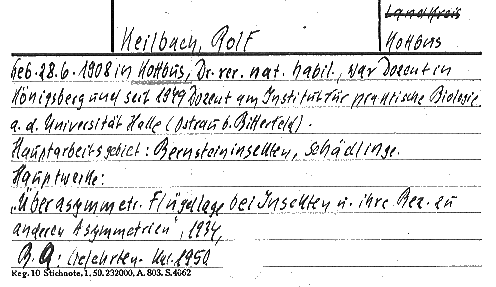 Landkreis
Keilbach, Rolf
Kottbus
geb. 28.6.1908 in Kottbus, Dr. rer. nat. habil., war Dozent in
Königsberg und seit 1949 Dozent am Institut für praktische Biologie
a. d. Universität Halle (Ostrau b. Bitterfeld).
Hauptarbeitsgebiet: Bernsteininsekten, Schädlinge.
Hauptwerke:
„Über asymmetr. Flügellage bei Insekten u. ihre Bez. zu
anderen Asymmetrien", 1934,
B. Q: Gelehrten-Kal. 1950
Reg. 10 Stichnote. 1. 50. 232000. A. 803. S. 4062